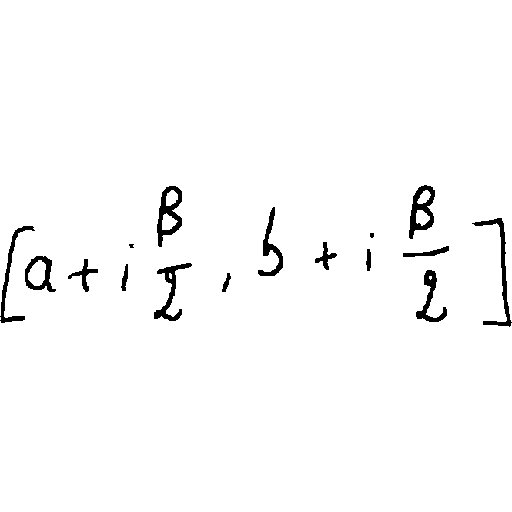 [a + i \frac{\beta}{2}, b + i \frac{\beta}{2}]